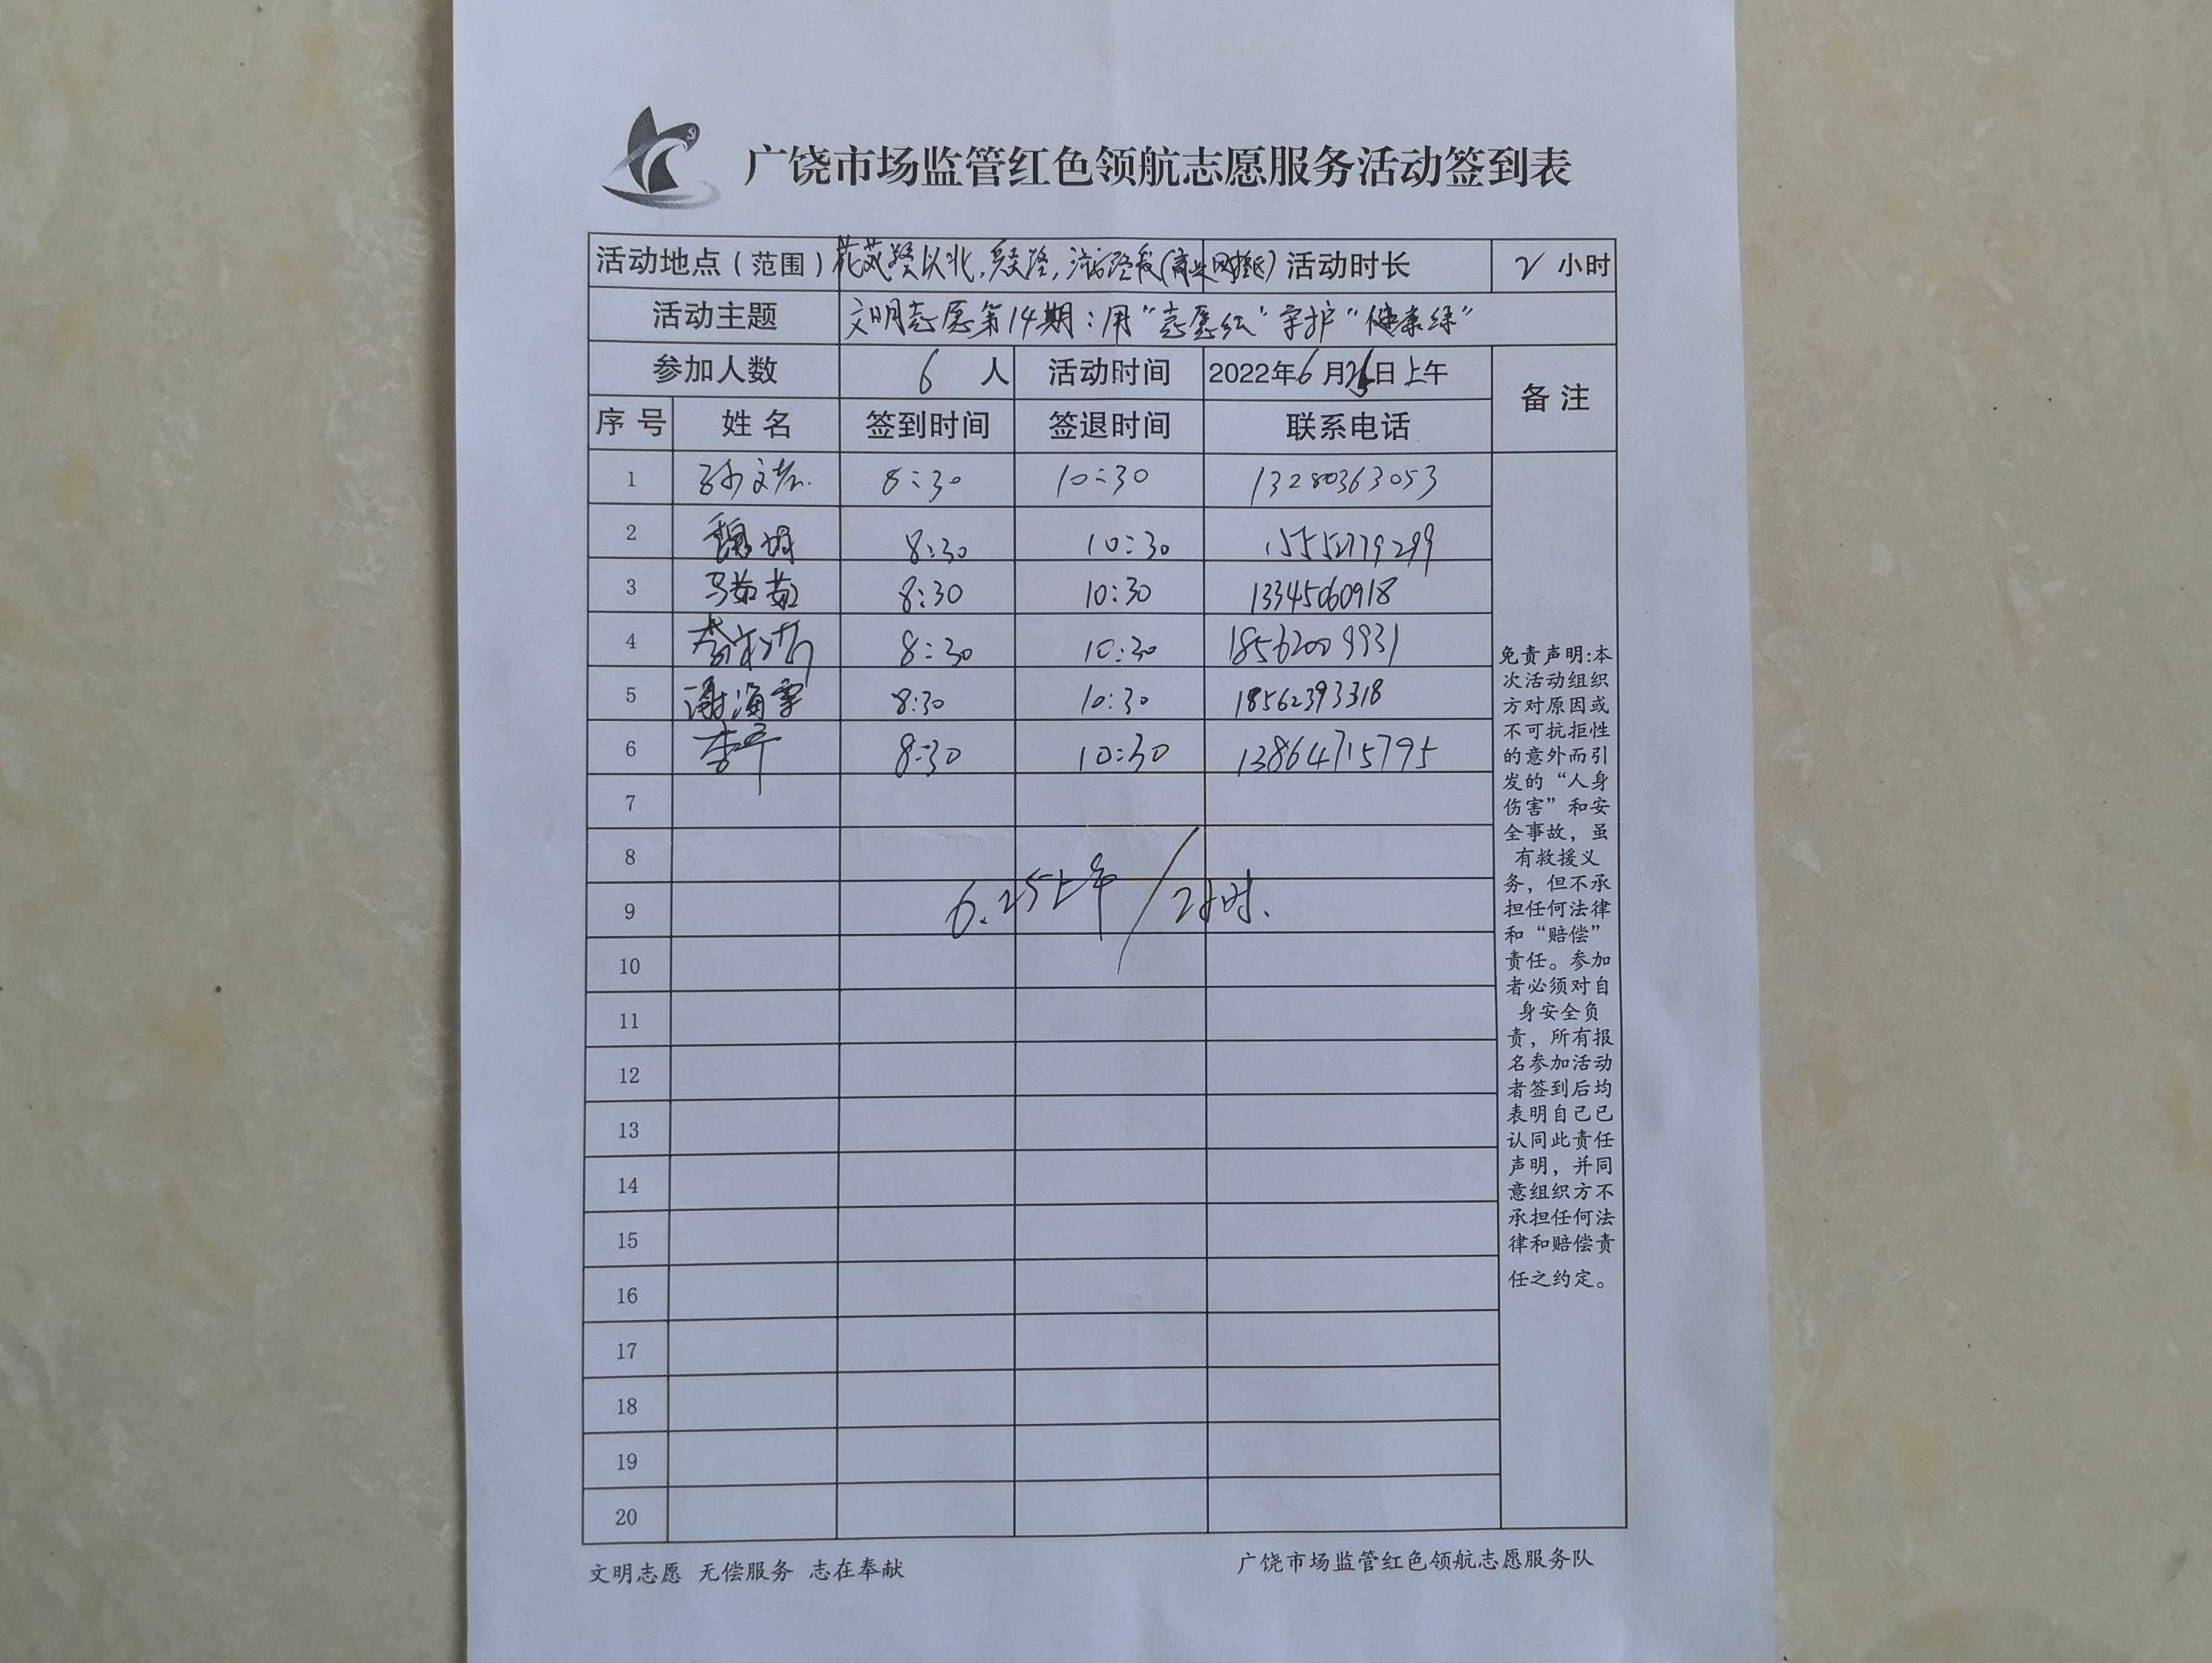 广饶市场监管红色领航志愿服务活动签到表
活动地点（范围） 花苑路以北, 活动时长 2 小时
活动主题 文明志愿第14期：用“志愿红”守护“健康绿”
参加人数 6 人 活动时间 2022年6月 日上午 备注
序号 姓名 签到时间 签退时间 联系电话
1 孙文 8:30 10:30 13280363053
2 魏 8:30 10:30 15552779299
3 马茹茹 8:30 10:30 13345060918
4 8:30 10:30 18562009931
5 谢海霞 8:30 10:30 18562393318
6 李平 8:30 10:30 13864715795
7
8
9
6.25上午/2小时.
10
11
12
13
14
15
16
17
18
19
20
免责声明:本
次活动组织
方对原因或
不可抗拒性
的意外而引
发的“人身
伤害”和安
全事故，虽
有救援义
务，但不承
担任何法律
和“赔偿”
责任。参加
者必须对自
身安全负
责，所有报
名参加活动
者签到后均
表明自己已
认同此责任
声明，并同
意组织方不
承担任何法
律和赔偿责
任之约定。
文明志愿 无偿服务 志在奉献
广饶市场监管红色领航志愿服务队